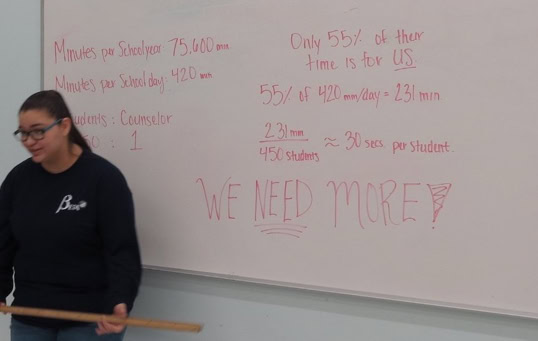 Minutes per School year: 75,600 min
Minutes per School day: 420 min
Students : Counselor
50 : 1
Only 55% of their
time is for US.
55% of 420 min/day = 231 min
231 min
450 students
≈ 30 secs. per student.
WE NEED MORE!